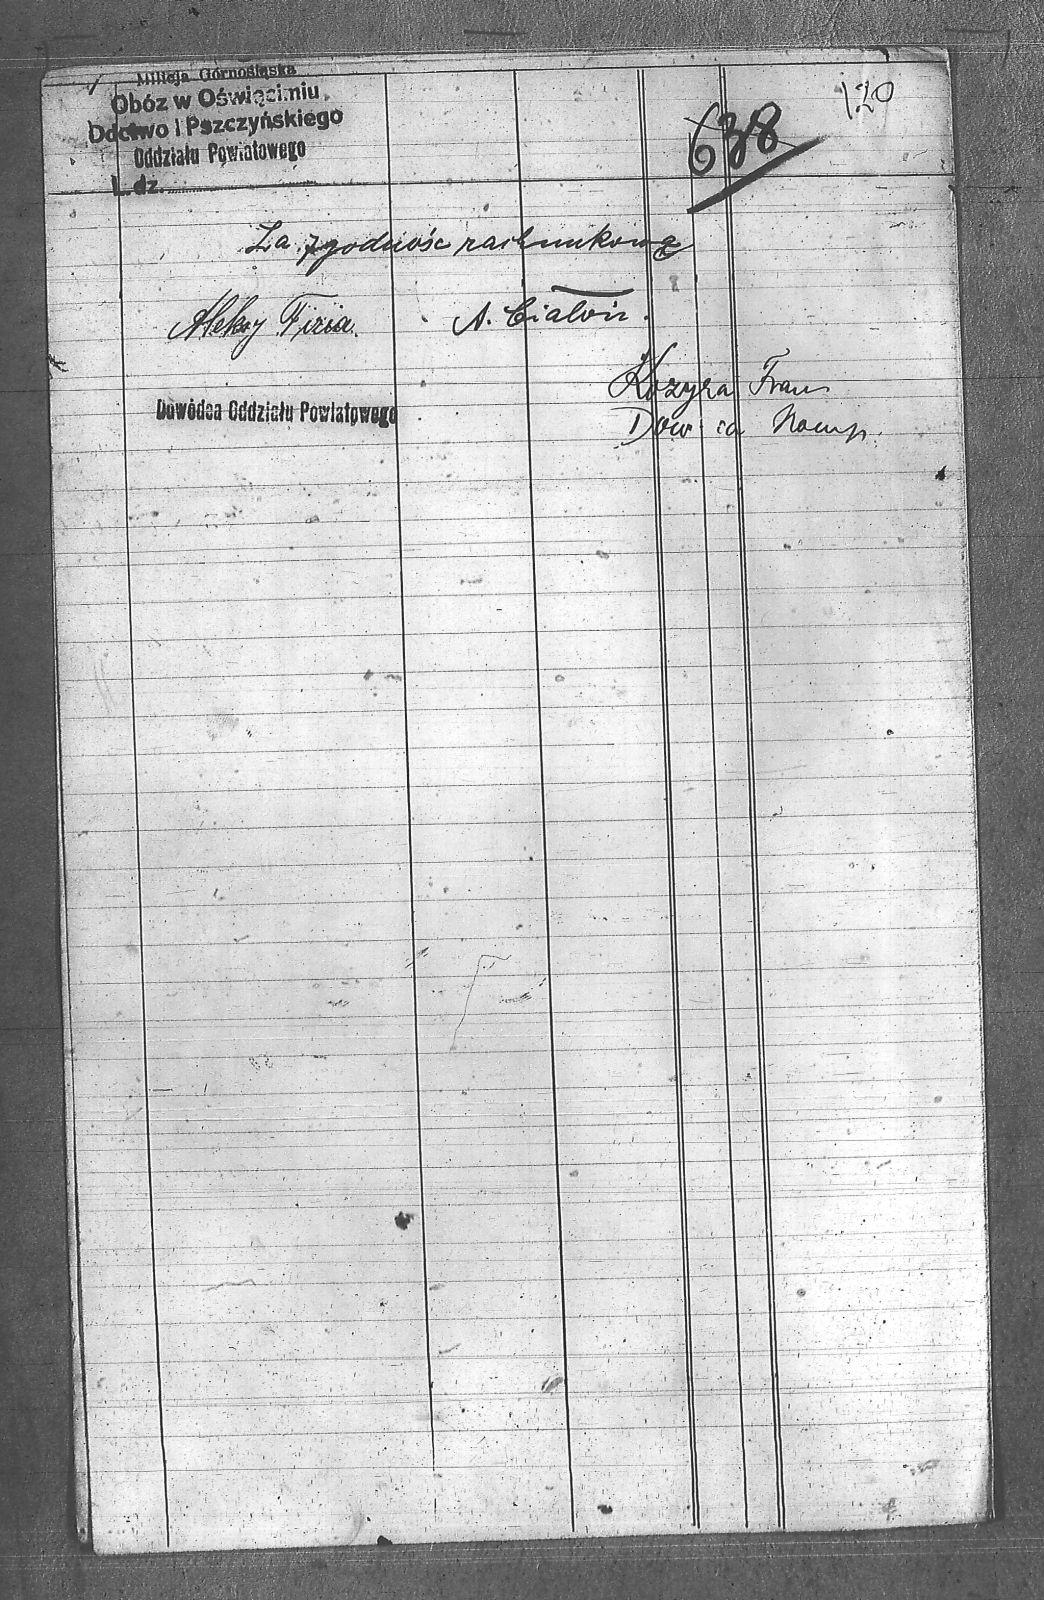 Milicja Górnośląska
Obóz w Oświęcimiu
Odctwo I Pszczyńskiego
Oddziału Powiatowego
L. dz.
638
120
Za zgodność rachunkową
Aleksy Fizia.
A. Białoń.
Kozyra Fran
Dow-ca Komp.
Dowódca Oddziału Powiatowego